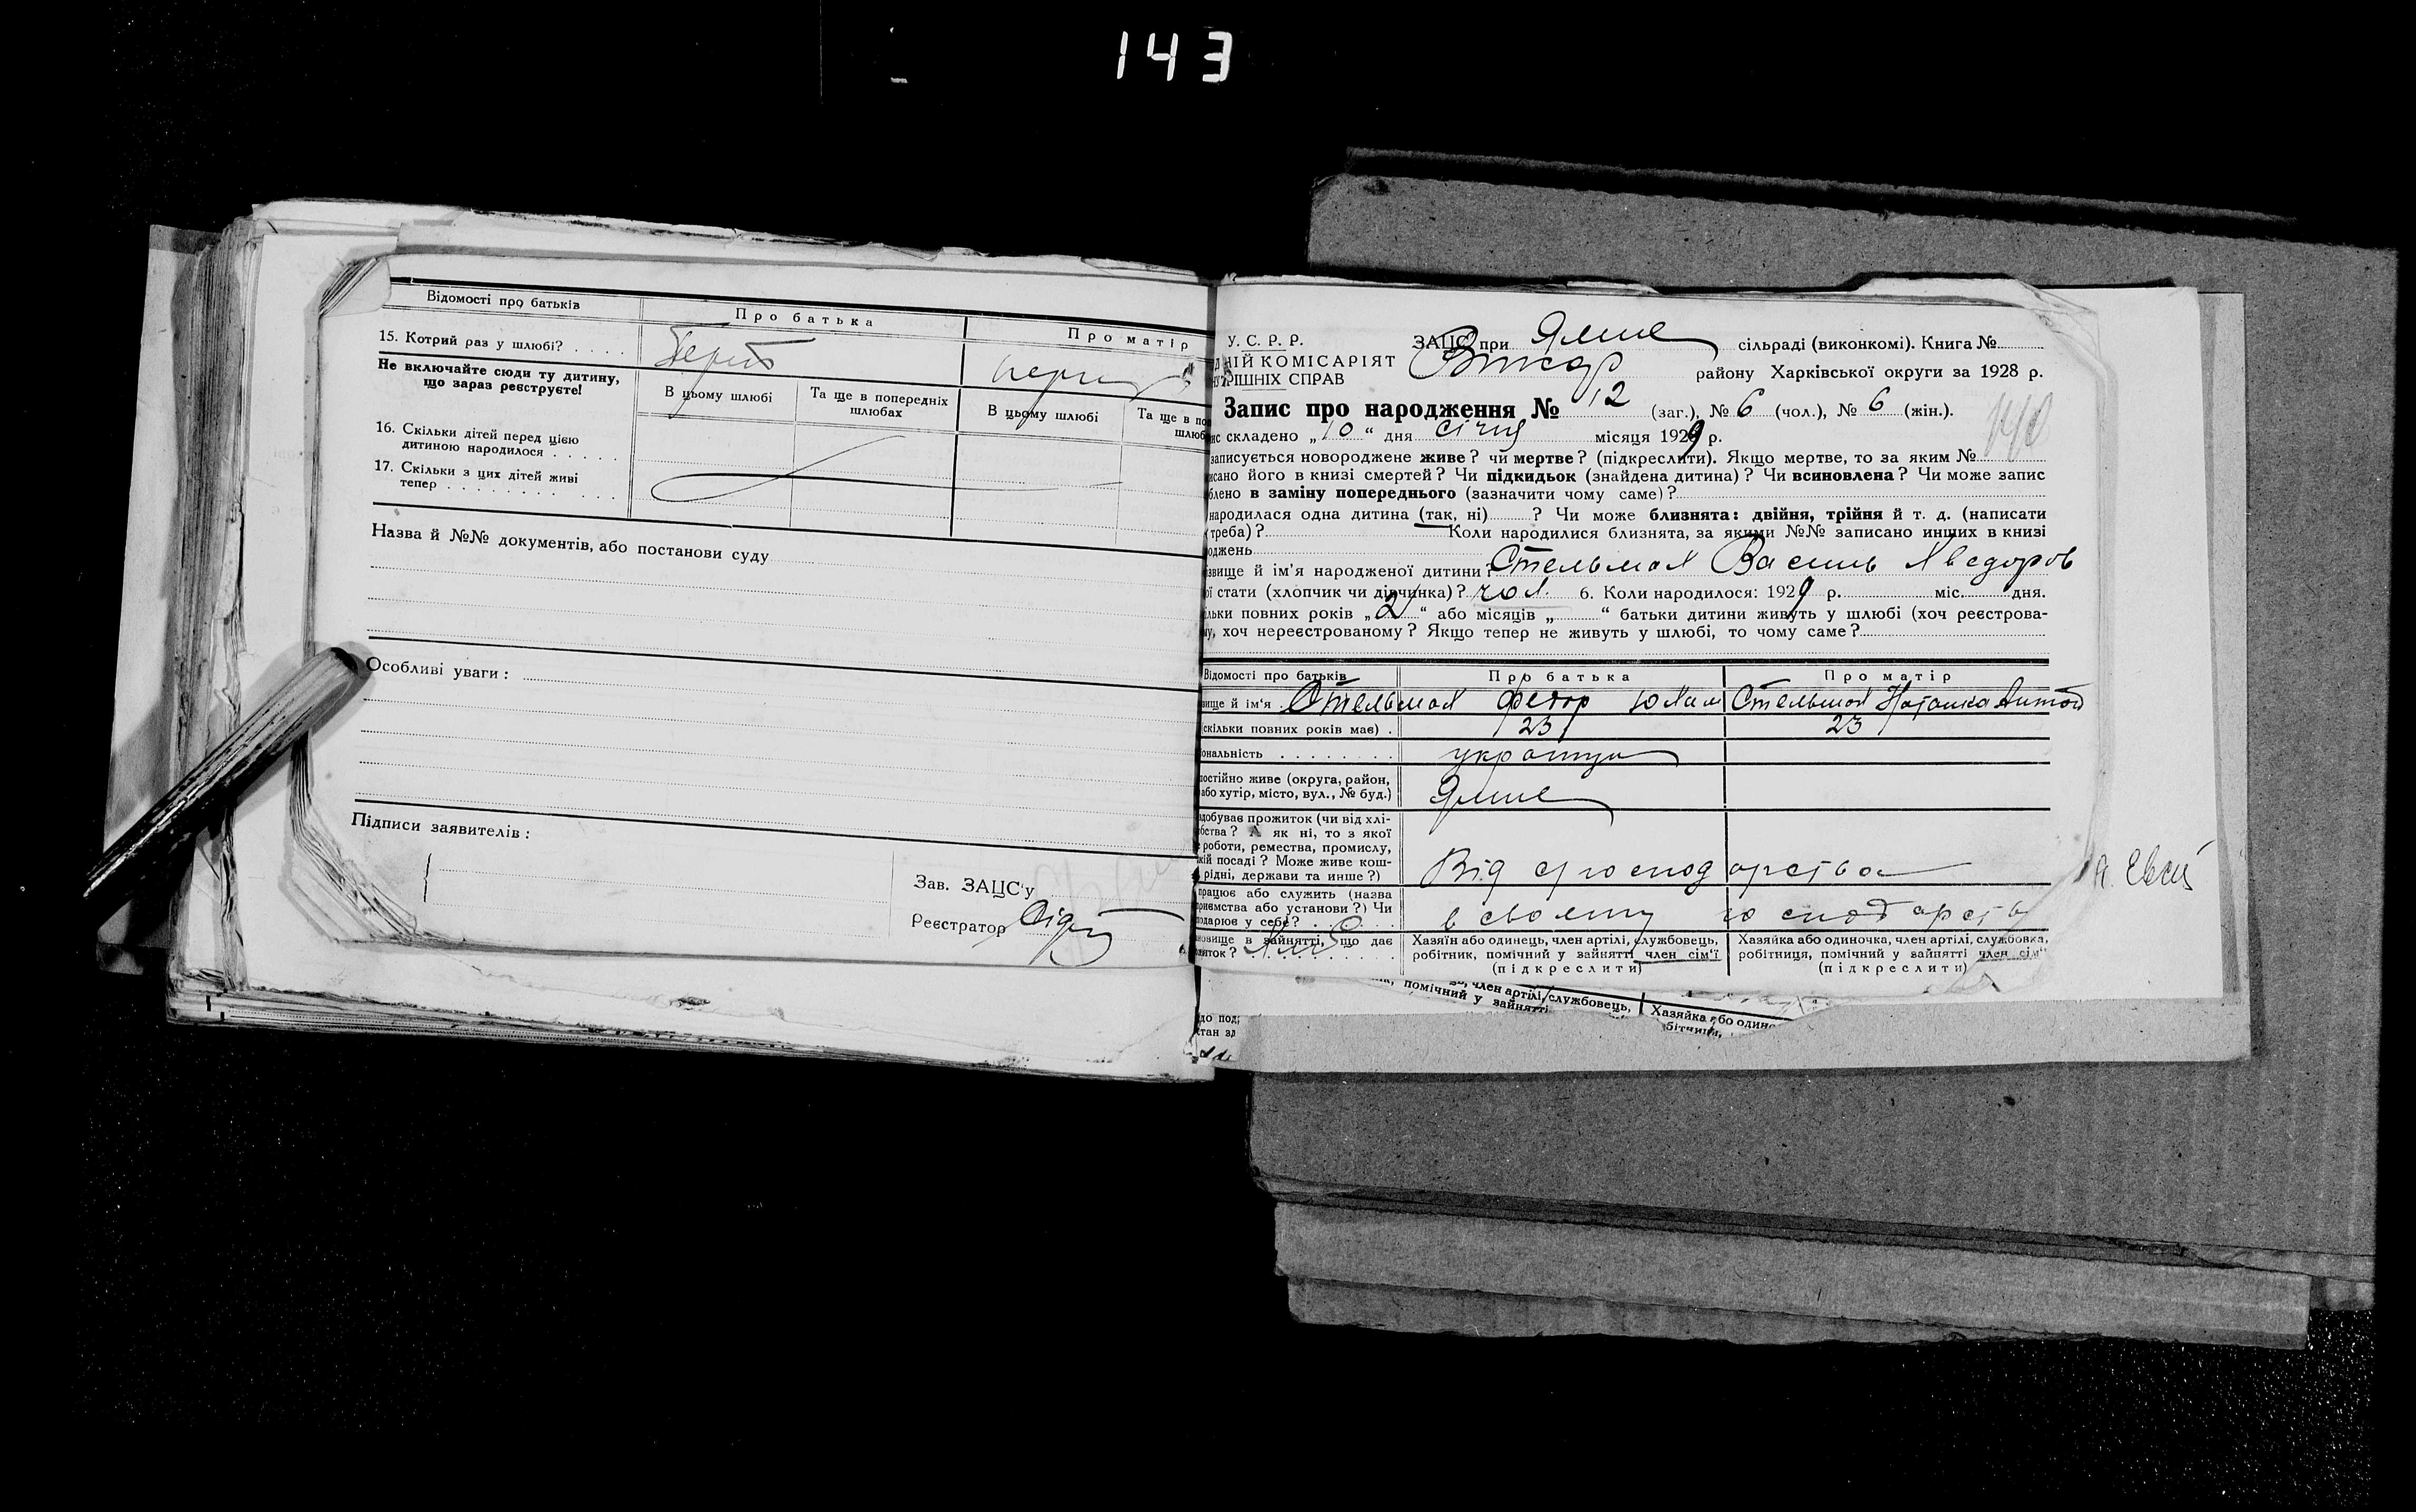 143
Відомості про батьків
Про батька
Про матір
15. Котрий раз у шлюбі? . . . .
Не включайте сюди ту дитину, що зараз реєструєте!
В цьому шлюбі
Та ще в попередніх шлюбах
В цьому шлюбі
Та ще в по
шлюб
16. Скільки дітей перед цією
дитиною народилося . . . . .
17. Скільки з цих дітей живі
тепер . . . . . . . . .
Назва й №№ документів, або постанови суду
Особливі уваги :
Підписи заявителів :
Зав. ЗАЦС'у
Реєстратор
У. С. Р. Р.
НІЙ КОМІСАРІЯТ
РІШНІХ СПРАВ
ЗАЦС при сільраді (виконкомі). Книга №
району Харківської округи за 1928 р.
Запис про народження № 12 (заг.), № 6 (чол.), № 6 (жін.).
ис складено „10“ дня січня місяця 1929 р.
записується новороджене живе? чи мертве? (підкреслити). Якщо мертве, то за яким №
исано його в книзі смертей? Чи підкидьок (знайдена дитина)? Чи всиновлена? Чи може запис
блено в заміну попереднього (зазначити чому саме)?
народилася одна дитина (так, ні) ? Чи може близнята: двійня, трійня й т. д. (написати
треба)? Коли народилися близнята, за якими №№ записано инших в книзі
оджень
звище й ім'я народженої дитини? Стельмах Василь Хведоров
ої стати (хлопчик чи дівчинка)? чол. 6. Коли народилося: 1929 р. міс. дня.
льки повних років „2“ або місяців „ “ батьки дитини живуть у шлюбі (хоч реєстрова-
му, хоч нереєстрованому? Якщо тепер не живуть у шлюбі, то чому саме?
Відомості про батьків
Про батька
Про матір
вище й ім'я . Стельмах Федор Юхим
Стельмах Наталка Антон
скільки повних років має) . 23
23
ональність . . . . . . . .
постійно живе (округа, район,
або хутір, місто, вул., № буд.)
здобуває прожиток (чи від хлі-
бства? А як ні, то з якої
роботи, ремества, промислу,
кій посаді? Може живе кош-
рідні, держави та инше?)
Від господарства
працює або служить (назва
приємства або установи?) Чи
подарює у себе? . . . .
в своєму господарстві
новище в зайнятті, що дає
иток? . . . . .
Хазяїн або одинець, член артілі, службовець,
робітник, помічний у зайнятті член сім'ї
(підкреслити)
Хазяйка або одиночка, член артілі, службовка,
робітниця, помічний у зайнятті член сім'ї
(підкреслити)
член артілі, службовець,
помічний у зайнятті
Хазяйка або одино
бітниця,
до под
стан зд